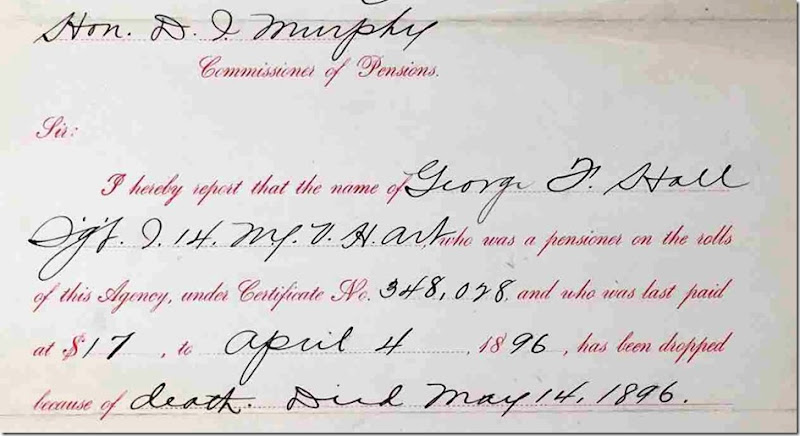 Hon. D. I. Murphy
Commissioner of Pensions.
Sir:
I hereby report that the name of George F. Hall
Sgt. I. 14. N.Y. V. H. Art, who was a pensioner on the rolls
of this Agency, under Certificate No. 348,028, and who was last paid
at $17, to April 4, 1896, has been dropped
because of death. Died May 14, 1896.